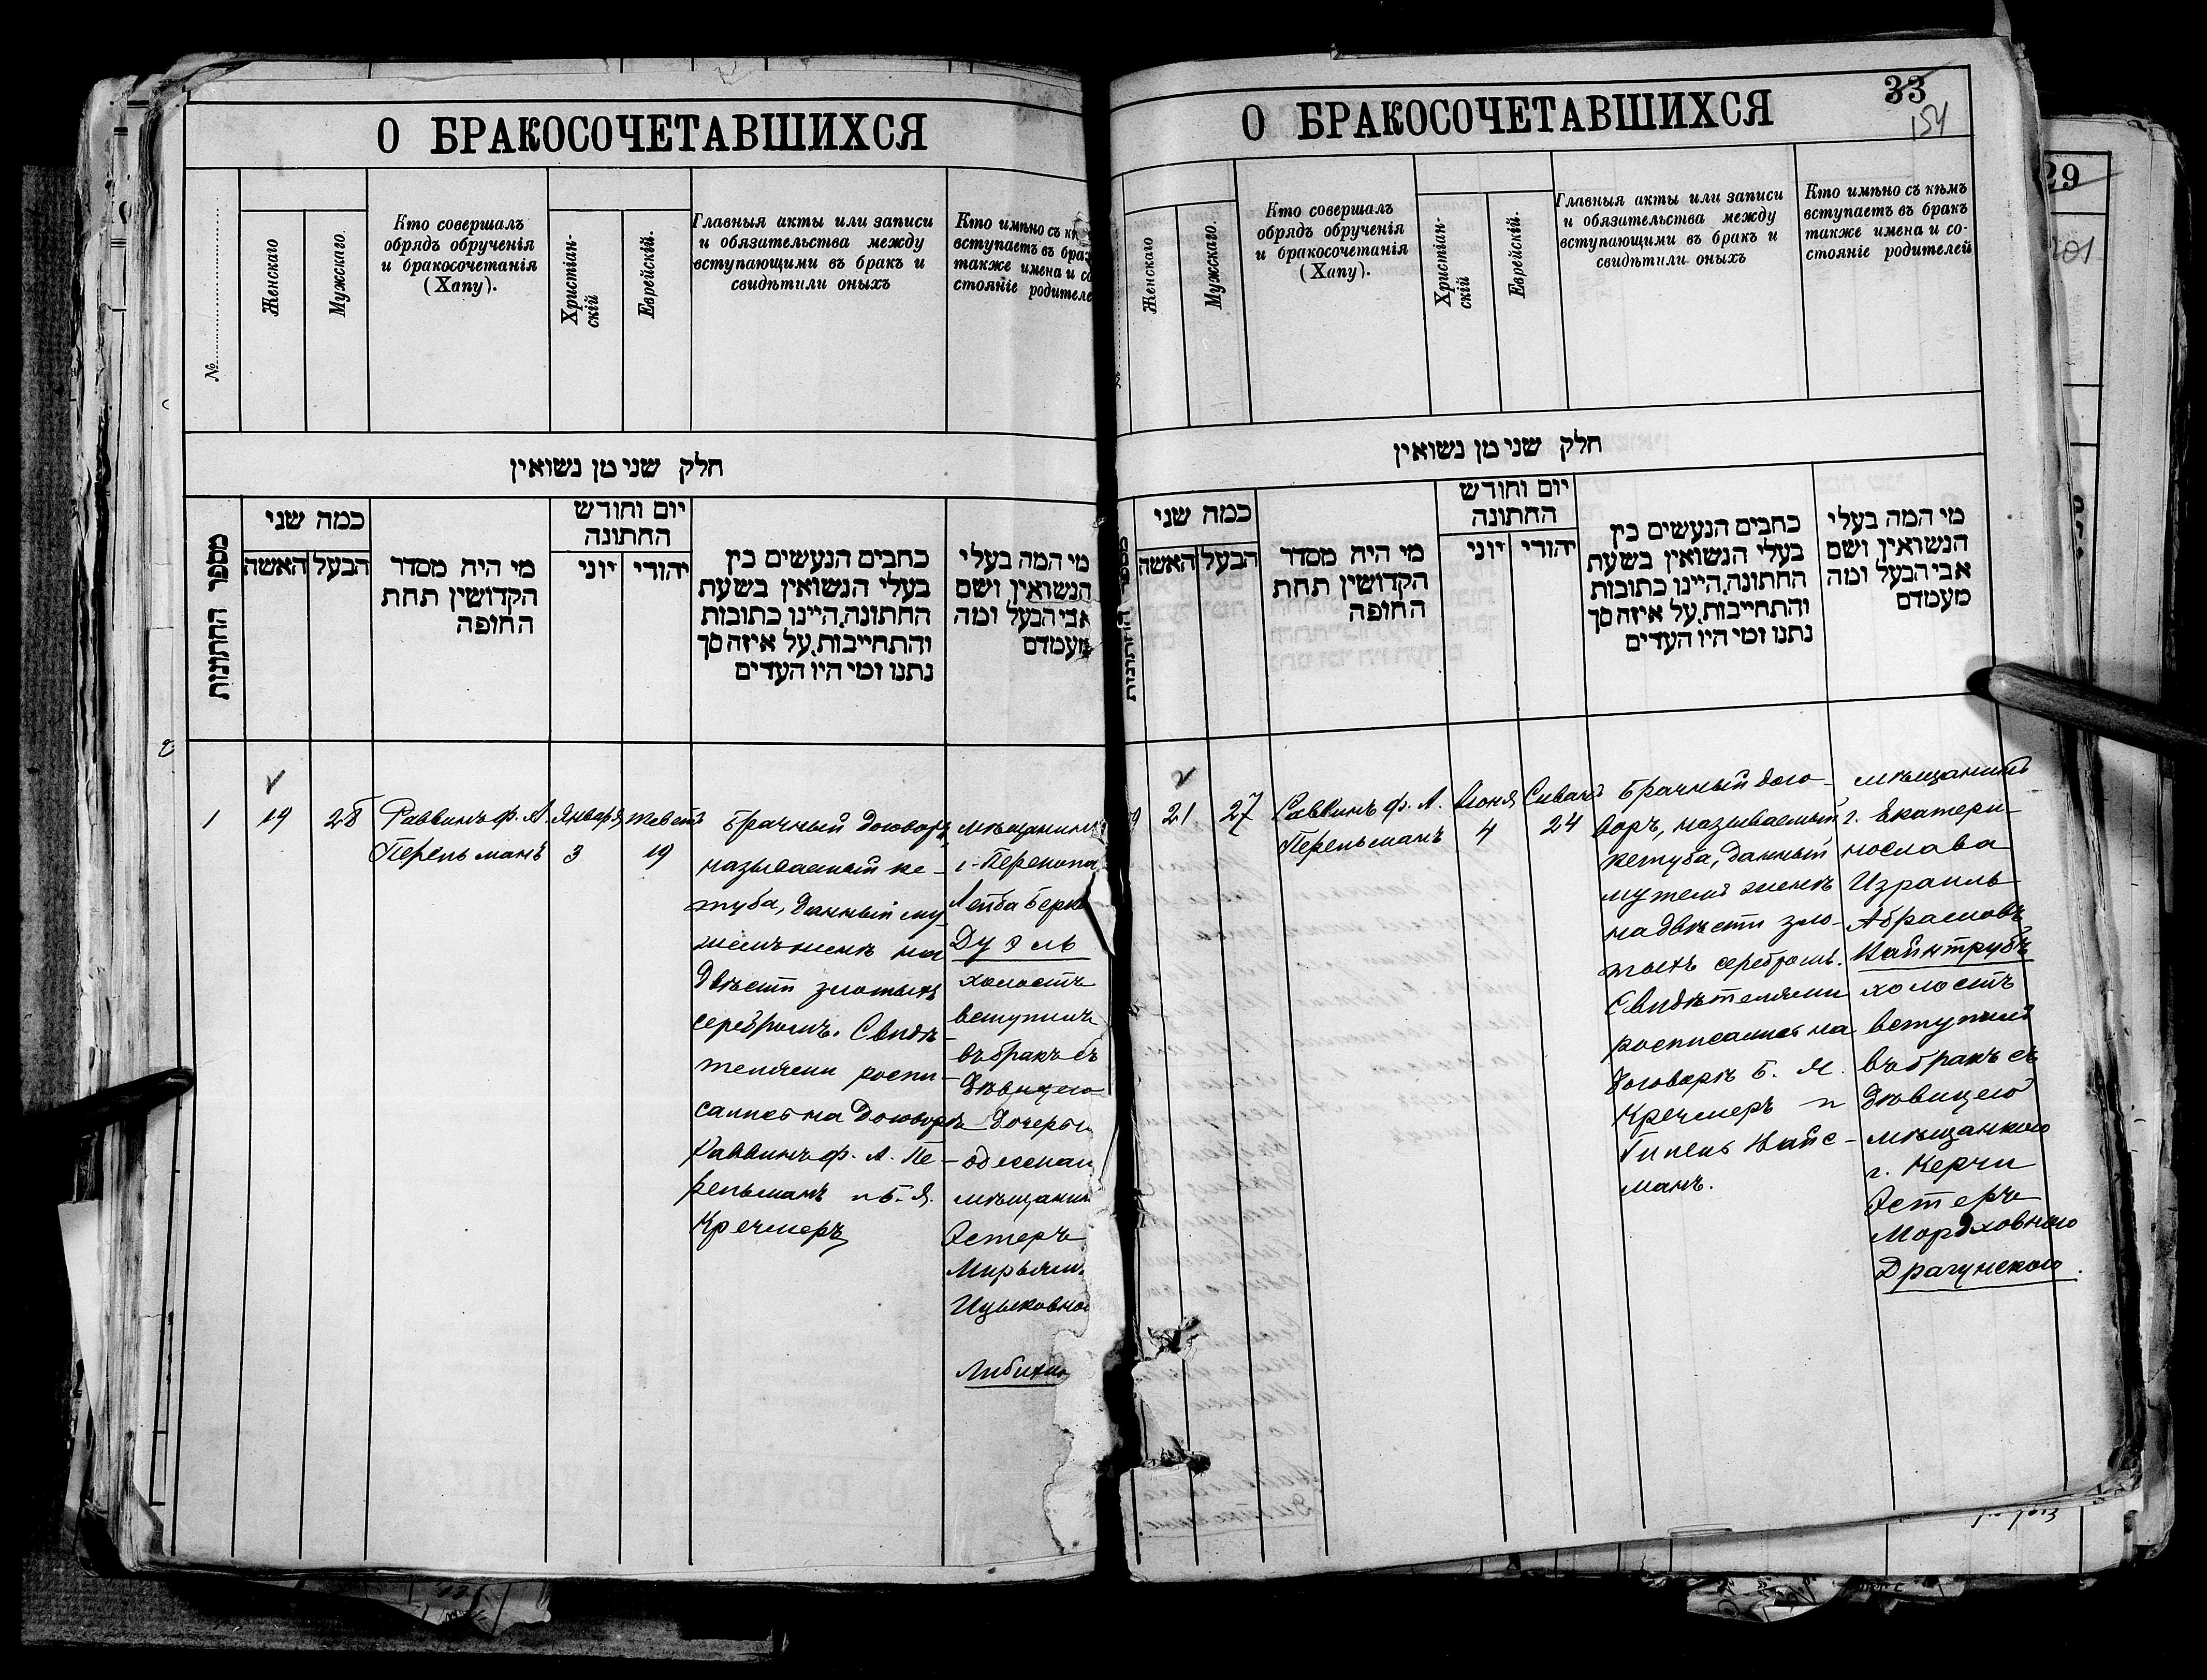 О БРАКОСОЧЕТАВШИХСЯ
№
Женскаго
Мужскаго.
Кто совершалъ
обрядъ обрученія
и бракосочетанія
(Хапу).
Христіан-
скій
Еврейскій.
Главныя акты или записи
и обязательства между
вступающими въ бракъ и
свидѣтили оныхъ
Кто имѣно съ
вступаетъ въ
также имена и
стояніе
חלק שני מן נשואין
מספר החתונות
כמה שני
האשה
הבעל
מי היה מסדר
הקדושין תחת
החופה
יום וחודש
החתונה
יוני
יהודי
כתבים הנעשים בין
בעלי הנשואין בשעת
החתונה.היינו כתובות
והתחייבות.על איזה סך
נתנו ומי היו העדים
מי המה בעלי
הנשואין ושם
אבי הבעל ומה
מעמדם
1
19
28
Раввинъ ф. А.
Перельманъ
Января
3
Тевета
19
Брачный договоръ,
называемый ке-
туба, данный му-
жемъ женѣ на
двѣсти злотыхъ
серебромъ. Свидѣ-
телями роспи-
сались на договорѣ
Раввинъ ф. А. Пе-
рельманъ и Б. Я.
Кречмеръ
мѣщанинъ
г. Перекопа
Лейба Берк
Дуэль
холостъ
вступилъ
въ бракъ съ
дѣвицею
дочерью
одесскаг
мѣщанин
Эстеръ
Мирьям
Ицьковно
О БРАКОСОЧЕТАВШИХСЯ
33
154
Женскаго
Мужскаго.
Кто совершалъ
обрядъ обрученія
и бракосочетанія
(Хапу).
Христіан-
скій
Еврейскій.
Главныя акты или записи
и обязательства между
вступающими въ бракъ и
свидѣтили оныхъ
Кто имѣно съ кѣмъ
вступаетъ въ бракъ
также имена и со-
стояніе родителей
חלק שני מן נשואין
כמה שני
האשה
הבעל
מי היה מסדר
הקדושין תחת
החופה
יום וחודש
החתונה
יוני
יהודי
כתבים הנעשים בין
בעלי הנשואין בשעת
החתונה.היינו כתובות
והתחייבות.על איזה סך
נתנו ומי היו העדים
מי המה בעלי
הנשואין ושם
אבי הבעל ומה
מעמדם
21
27
Раввинъ ф. А.
Перельманъ
Іюня
4
Сивана
24
Брачный дого-
воръ, называемый
кетуба, данный
мужемъ женѣ
на двѣсти зло-
тыхъ серебромъ.
Свидѣтелями
росписались на
договорѣ Б. Я.
Кречмеръ и
Гипель Вайс-
манъ.
мѣщанинъ
г. Екатери-
нослава
Израиль
Абрамовъ
Вайнтрубъ
холостъ
вступилъ
въ бракъ съ
дѣвицею
мѣщанкою
г. Керчи
Эстеръ
Мордховною
Драгунскою.
29
201